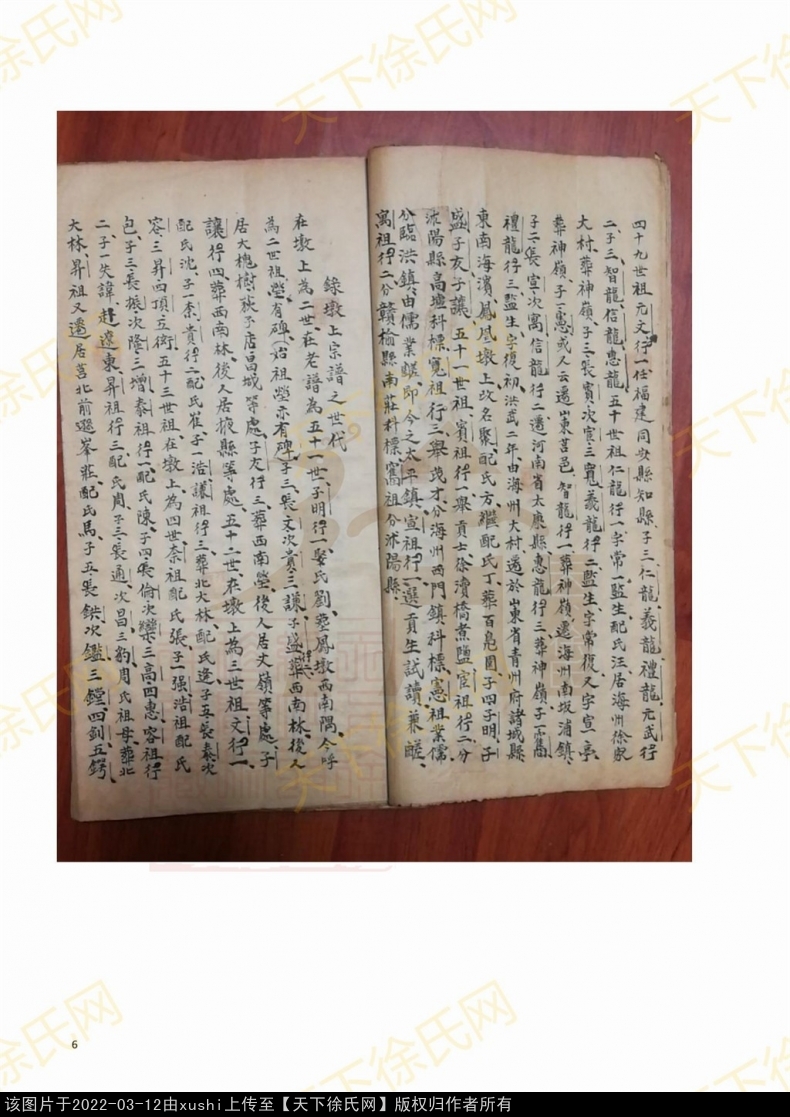 四十九世祖元文行一任福建同安縣知縣子三仁龍義龍禮龍元武行
二子三智龍信龍惠龍五十世祖仁龍行一字常一監生配氏汪居海州徐家
大村葬神嶺子三長賓次宦三寬義龍行二監生字常復又字宣一亭
葬神嶺子一憲或人云遷山東莒邑智龍行一葬神嶺遷海州南坂浦鎮
子二長宣次寓信龍行二遷河南省太康縣惠龍行三葬神嶺子一窩
禮龍行三監生字復初洪武二年由海州大村遷於山東省青州府諸城縣
東南海濱鳳凰墩上改名聚配氏方繼配氏丁葬百皂園子四子明子
盛子友子讓五十一世祖賓祖行一舉貢士徐瀆橋煮鹽宦祖行二分
沭陽縣高墟科標寬祖行三舉茂才分海州西門鎮科標憲祖業儒
分臨洪鎮由儒業鹺即今之太平鎮宣祖行一選貢生試讀兼鹺
寓祖行二分贛榆縣南莊科標窩祖分沭陽縣
錄墩上宗譜之世代
在墩上為二世在老譜為五十一世子明行一娶氏劉葬鳳墩西南隅今呼
為二世祖塋有碑始祖塋亦有碑子三長文次貴三謙子盛行二葬西南林後人
居大槐樹狄子店昌城等處子友行三葬西南塋後人居丈嶺等處子
讓行四葬西南林後人居掖縣等處五十二世在墩上為三世祖文行一
配氏沈子一奈貴行二配氏崔子一浩議祖行三葬北大林配氏逄子五長泰次
容三昇四頂五衡五十三世祖在墩上為四世奈祖配氏張子一强浩祖配氏
包子三長振次隆三增泰祖行一配氏陳子四長倫次欒三高四惠容祖行
二子一失諱赴遼東昇祖行三配氏周子三長通次昌三豹周氏祖母葬北
大林昇祖又遷居莒北前曬峯莊配氏馬子五長鉷次鑑三鏜四釗五鍔
6
该图片于2022-03-12由xushi上传至【天下徐氏网】版权归作者所有
天下徐氏网